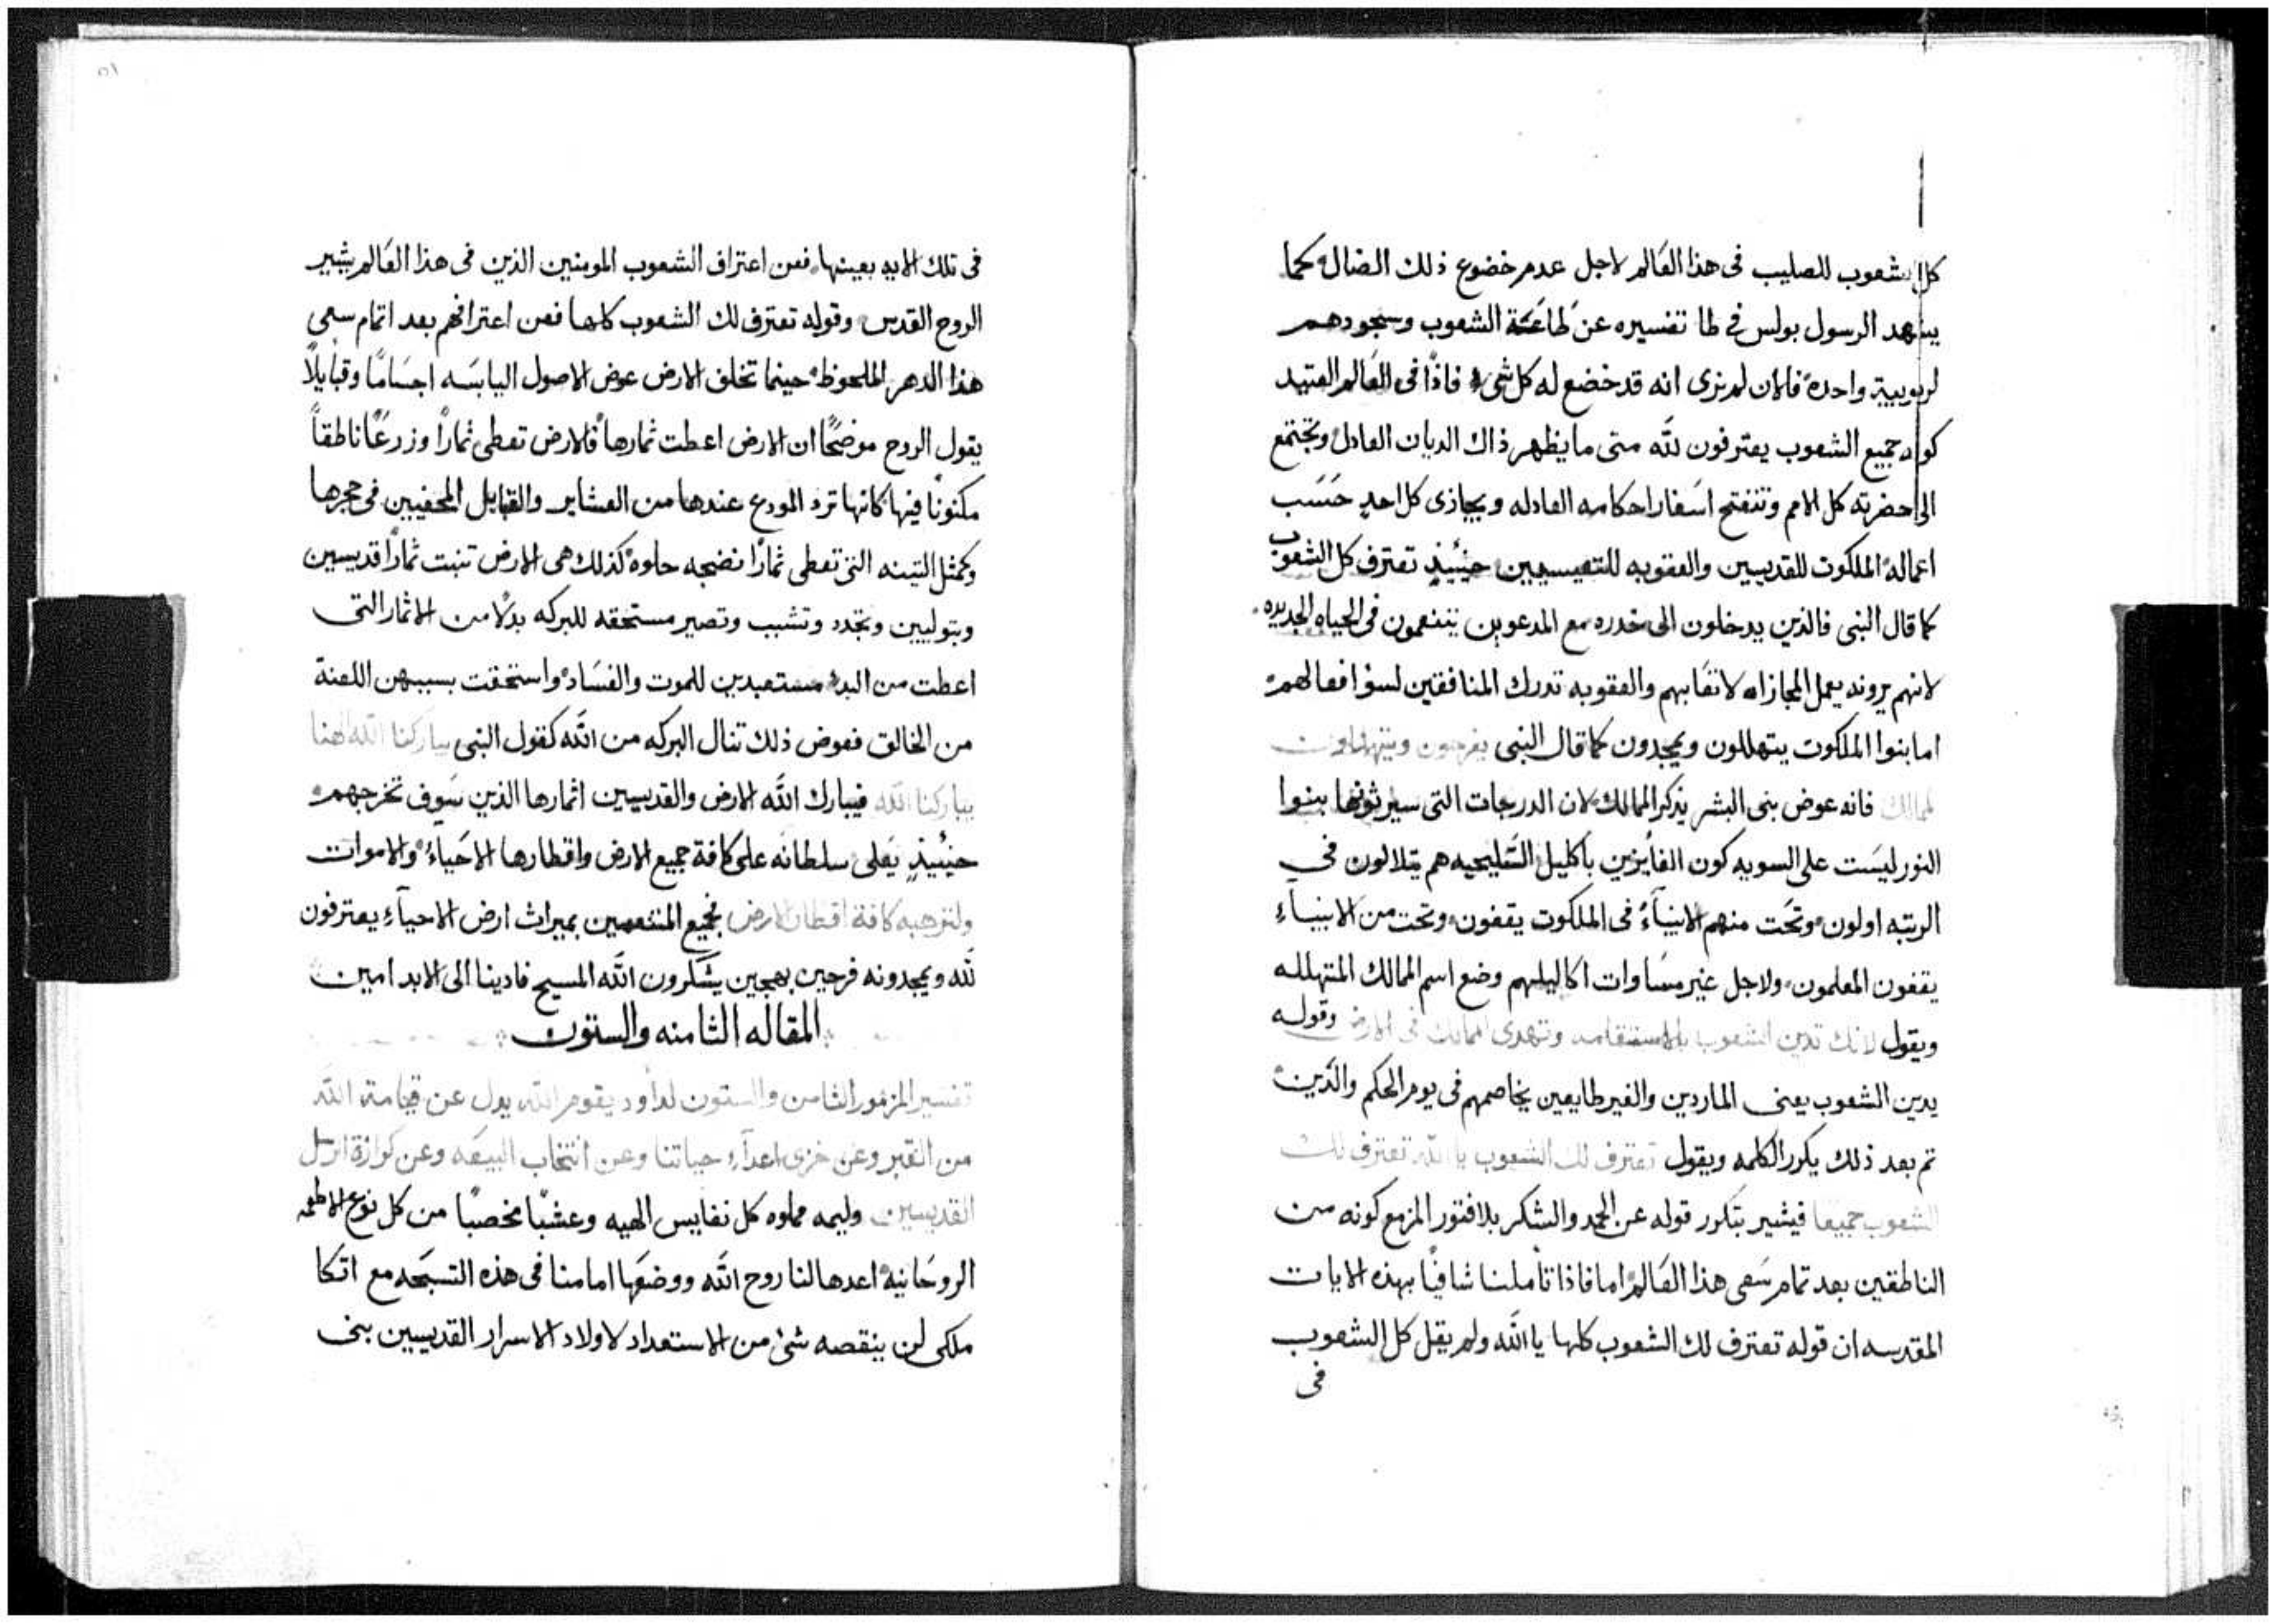 كل الشعوب للصليب فى هذا العَالم لاجل عدم خضوع ذلك الضال كما
يشهد الرسول بولس فى طا تفسيره عن طاعَة الشعوب وسجودهم
لربوبية واحده فالان لم نرى انه قد خضع له كل شى فاذًا فى العَالم العتيد
كون جميع الشعوب يعترفون لله متى ما يظهر ذاك الديان العادل وتجتمع
الى حضرته كل الامم وتنفتح اسَفار احكامه العادله ويجازى كل احدٍ حَسَب
اعماله الملكوت للقديسين والعقوبه للتعيسيين حينُيذٍ تعترف كل الشعوب
كما قال النبى فالذين يدخلون الى خدره مع المدعوين يتنعمون فى الحياه الجديده
لانهم يرونه يعمل المجازاه لاتقَايهم والعقوبه تدرك المنافقين لسؤ افعالهم
اما بنوا الملكوت يتهللون ويمجدون كما قال النبى يفرحون ويتهللون
لممالك فانه عوض بنى البشر يذكر الممالك لان الدرجات التى سيرثونها بنوا
النور ليسَت على السويه كون الفايزين باكليل السَليحيه هم يتلالون فى
الرتبه اولون وتحَت منهم الانبيآءُ فى الملكوت يقفون وتحت من الانبيآءِ
يقفون المعلمون ولاجل غير مسَاوات اكاليلهم وضع اسم الممالك المتهلله
ويقول لانك تدين الشعوب بالاستقامه وتهدى الممالك فى الارض وقوله
يدين الشعوب يعنى الماردين والغير طايعين يخاصمهم فى يوم الحكم والدَين
ثم بعد ذلك يكرر الكلمه ويقول تعترف لك الشعوب يا الله تعترف لك
الشعوب جميعا فيشير بتكرر قوله عن الحمد والشكر بلا فتور المزمع كونه من
الناطقين بعد تمام سَعى هذا العَالم اما فاذا تأملنا شافيًا بهذه الايات
المقدسه ان قوله تعترف لك الشعوب كلها يا الله ولم يقل كل الشعوب
فى
٥١
فى تلك الايه بعينها فعن اعتراف الشعوب المومنين الذين فى هذا العَالم يشير
الروح القدس وقوله تعترف لك الشعوب كلها فعن اعترافهم بعد اتمام سعى
هذا الدهر الملحوظ حينما تخلف الارض عوض الاصول اليابسَه اجسَامًا وقبايلاً
يقول الروح موضحًا ان الارض اعطت ثمارها فالارض تعطى ثمارًا وزرعًا ناطقاً
مكنونًا فيها كانها ترد المودع عندها من العشاير والقبايل المخفيين فى حجرها
وكمثل التينه التى تعطى ثمارًا نضجه حلوه كذلك هى الارض تنبت ثمارًا قديسين
وبتوليين وتجدد وتشبب وتصير مستحقه للبركه بدلًا من الاثمار التى
اعطت من البدء مستعبدين للموت والفسَاد واستحقت بسببهن اللعنة
من الخالق فعوض ذلك تنال البركه من الله كقول النبى يباركنا الله الهنا
يباركنا الله فيبارك الله الارض والقديسين اثمارها الذين سَوف تخرجهم
حينُيذٍ يَعلى سلطانه على كافة جميع الارض واقطارها الاحَياءُ والاموات
ولترهبه كافة اقطار الارض فجميع المنتعمين بميراث ارض الاحيآءِ يعترفون
لله ويمجدونه فرحين بهجين يشكرون الله المسيح فادينا الى الابد امين
المقاله الثامنه والستون
تفسير المزمور الثامن والستون لداود يقوم الله يدل عن قيامة الله
من القبر وعن خزى اعدآءِ حياتنا وعن انتخاب البيعَه وعن كرازة الرسل
القديسين وليمه مملوه كل نفايس الهيه وعشبًا مخصبًا من كل نوع الاطعمه
الروحَانيه اعدها لنا روح الله ووضعَها امامنا فى هذه التسبَحه مع اتكا
ملكى لن ينقصه شئ من الاستعداد لاولاد الاسرار القديسين بنى